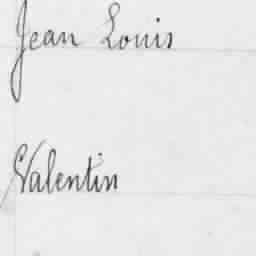 Jean Louis
Valentin